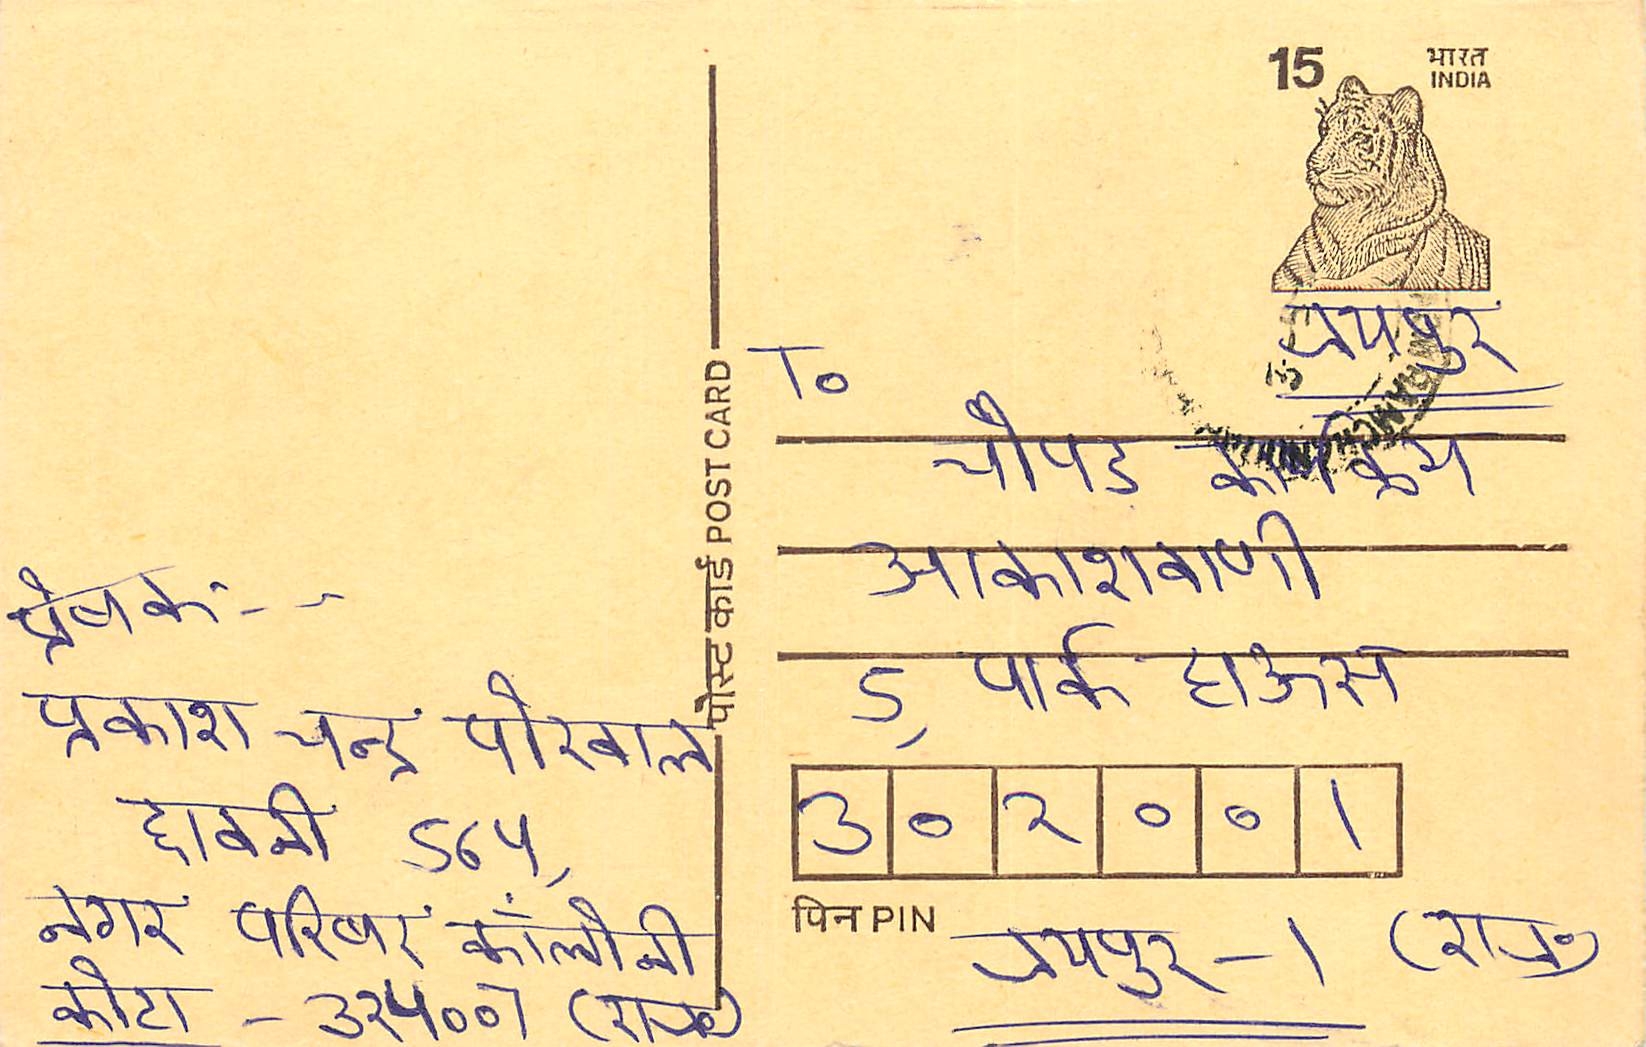 15 भारत
INDIA
जयपुर
To
चौपड कार्यक्रम
आकाशवाणी
5, पार्क हाऊस
3 0 2 0 0 1
पिन PIN
जयपुर - 1 (राज॰)
पोस्ट कार्ड POST CARD
प्रेषकः - -
प्रकाश चन्द्र पोरवाल
छावनी 564,
नगर परिषद कॉलोनी
कोटा - 324007 (राज॰)